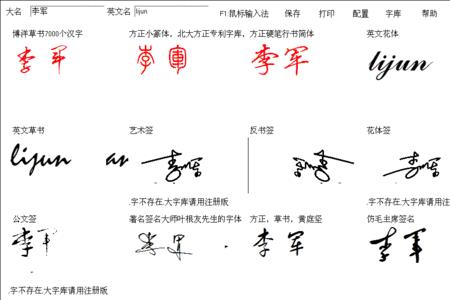 大名 李军 英文名 lijun F1:鼠标输入法 保存 打印 配置 字库 帮助
博洋草书7000个汉字 方正小篆体，北大方正专利字库，方正硬笔行书简体 英文花体
李军 李軍 李军 lijun
英文草书 艺术签 反书签 花体签
lijun
.字不存在.大字库请用注册版 .字不存在.大字库请用注册版
公文签 著名签名大师叶根友先生的字体 方正，草书，黄庭坚 仿毛主席签名
李军 李军 李军 李軍
.字不存在.大字库请用注册版